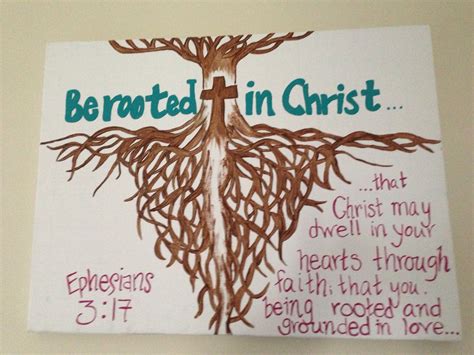 Be rooted in Christ...
...that
Christ may
dwell in your
hearts through
faith; that you.
being rooted and
grounded in love...
Ephesians
3:17